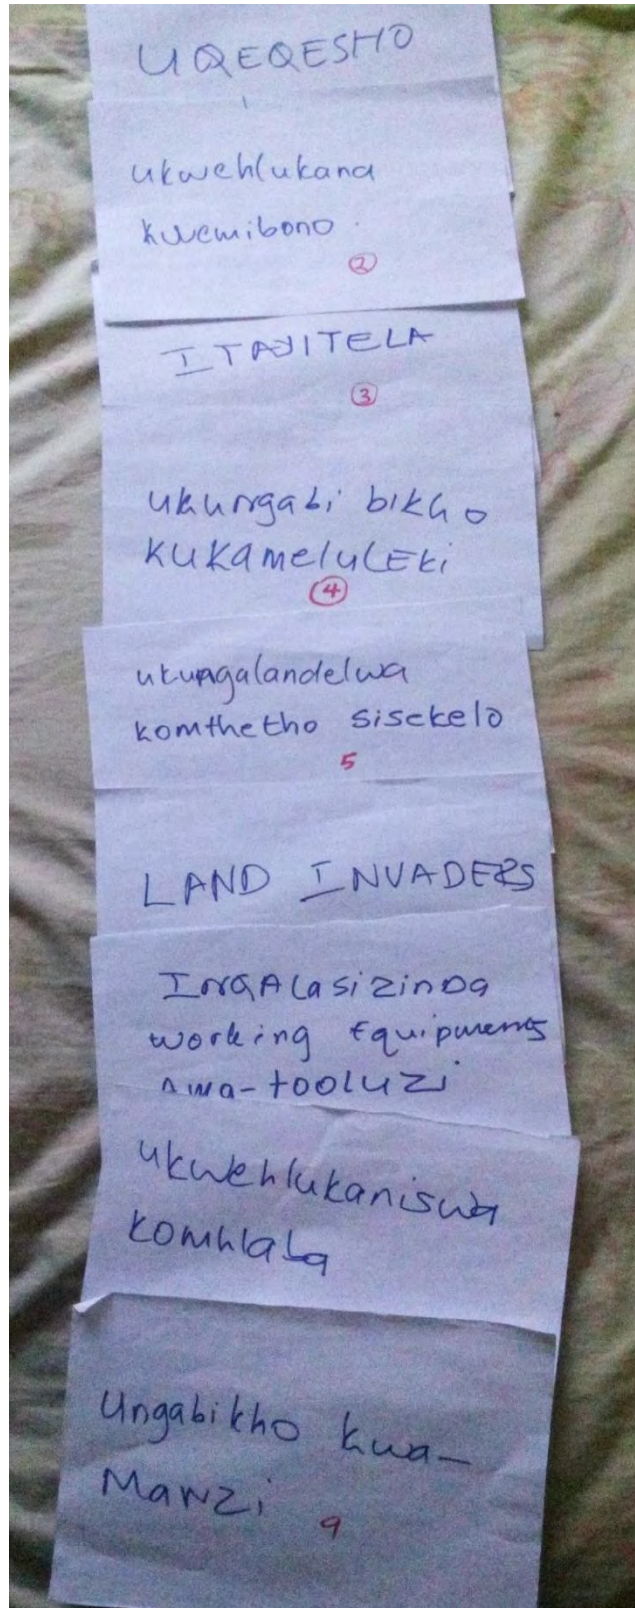 UQEQESHO
ukwehlukana
kwemibono.
2
ITAYITELA
3
ukungabi bikho
kukameluleki
4
ukungalandelwa
komthetho sisekelo
5
LAND INVADERS
IngqAlasizinDa
working Equipments
nama-tooluzi
ukwehlukaniswa
komhlaba
Ungabikho kwa-
Manzi
9